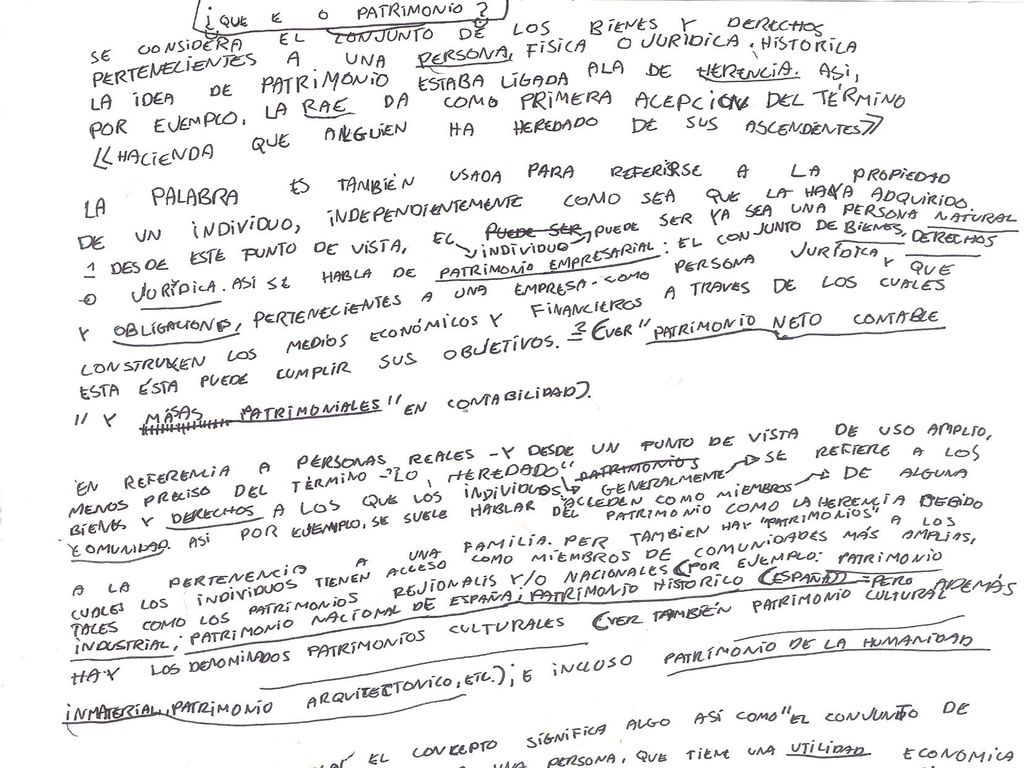 ¿QUE E O PATRIMONIO?
SE CONSIDERA EL CONJUNTO DE LOS BIENES Y DERECHOS
PERTENECIENTES A UNA PERSONA, FISICA O JURÍDICA. HISTORICA
LA IDEA DE PATRIMONIO ESTABA LIGADA ALA DE HERENCIA. ASI,
POR EJEMPLO, LA RAE DA COMO PRIMERA ACEPCION DEL TÉRMINO
«HACIENDA QUE ALGUIEN HA HEREDADO DE SUS ASCENDENTES»
LA PALABRA ES TAMBIÉN USADA PARA REFERIRSE A LA PROPIEDAD
DE UN INDIVIDUO, INDEPENDIENTEMENTE COMO SEA QUE LA HAYA ADQUIRIDO.
1 DESDE ESTE PUNTO DE VISTA, EL PUEDE SER INDIVIDUO PUEDE SER YA SEA UNA PERSONA NATURAL
O JURÍDICA. ASI SE HABLA DE PATRIMONIO EMPRESARIAL: EL CONJUNTO DE BIENES, DERECHOS
Y OBLIGACIONES, PERTENECIENTES A UNA EMPRESA-COMO PERSONA JURÍDICA Y QUE
CONSTRUYEN LOS MEDIOS ECONÓMICOS Y FINANCIEROS A TRAVES DE LOS CUALES
ESTA ÉSTA PUEDE CUMPLIR SUS OBJETIVOS. 2 (VER "PATRIMONIO NETO CONTABLE
" Y MASAS PATRIMONIALES" EN CONTABILIDAD).
EN REFERENCIA A PERSONAS REALES -Y DESDE UN PUNTO DE VISTA DE USO AMPLIO,
MENOS PRECISO DEL TÉRMINO -"LO HEREDADO" PATRIMONIOS SE REFIERE A LOS
BIENES Y DERECHOS A LOS QUE LOS INDIVIDUOS GENERALMENTE ACCEDEN COMO MIEMBROS DE ALGUNA
COMUNIDAD. ASI POR EJEMPLO, SE SUELE HABLAR DEL PATRIMONIO COMO LA HERENCIA DEBIDO
A LA PERTENENCIA A UNA FAMILIA. PER TAMBIEN HAY "PATRIMONIOS" A LOS
CUALES LOS INDIVIDUOS TIENEN ACCESO COMO MIEMBROS DE COMUNIDADES MÁS AMPLIAS,
TALES COMO LOS PATRIMONIOS REJIONALIS Y/O NACIONALES (POR EJEMPLO: PATRIMONIO
INDUSTRIAL; PATRIMONIO NACIONAL DE ESPAÑA; PATRIMONIO HISTORICO (ESPAÑA)) -PERO ADEMÁS
HAY LOS DENOMINADOS PATRIMONIOS CULTURALES (VER TAMBIÉN PATRIMONIO CULTURAL
INMATERIAL, PATRIMONIO ARQUITECTONICO, ETC.); E INCLUSO PATRIMONIO DE LA HUMANIDAD
EL CONCEPTO SIGNIFICA ALGO ASI COMO "EL CONJUNTO DE
UNA PERSONA, QUE TIENE UNA UTILIDAD ECONOMICA